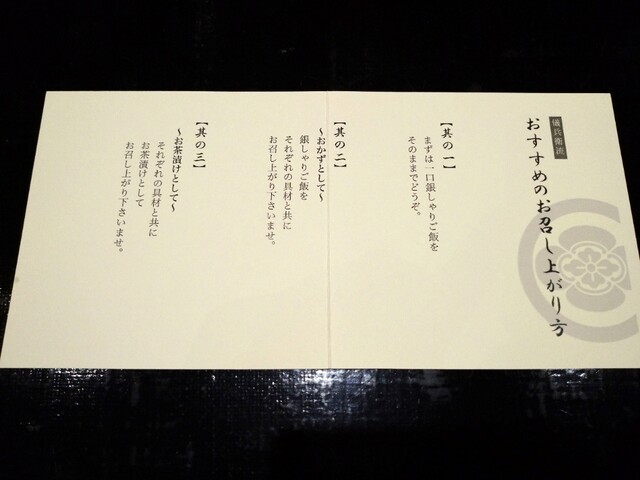 儀兵衛流
おすすめのお召し上がり方
【其の一】
まずは一口銀しゃりご飯を
そのままでどうぞ。
【其の二】
～おかずとして～
銀しゃりご飯を
それぞれの具材と共に
お召し上がり下さいませ。
【其の三】
～お茶漬けとして～
それぞれの具材と共に
お茶漬けとして
お召し上がり下さいませ。